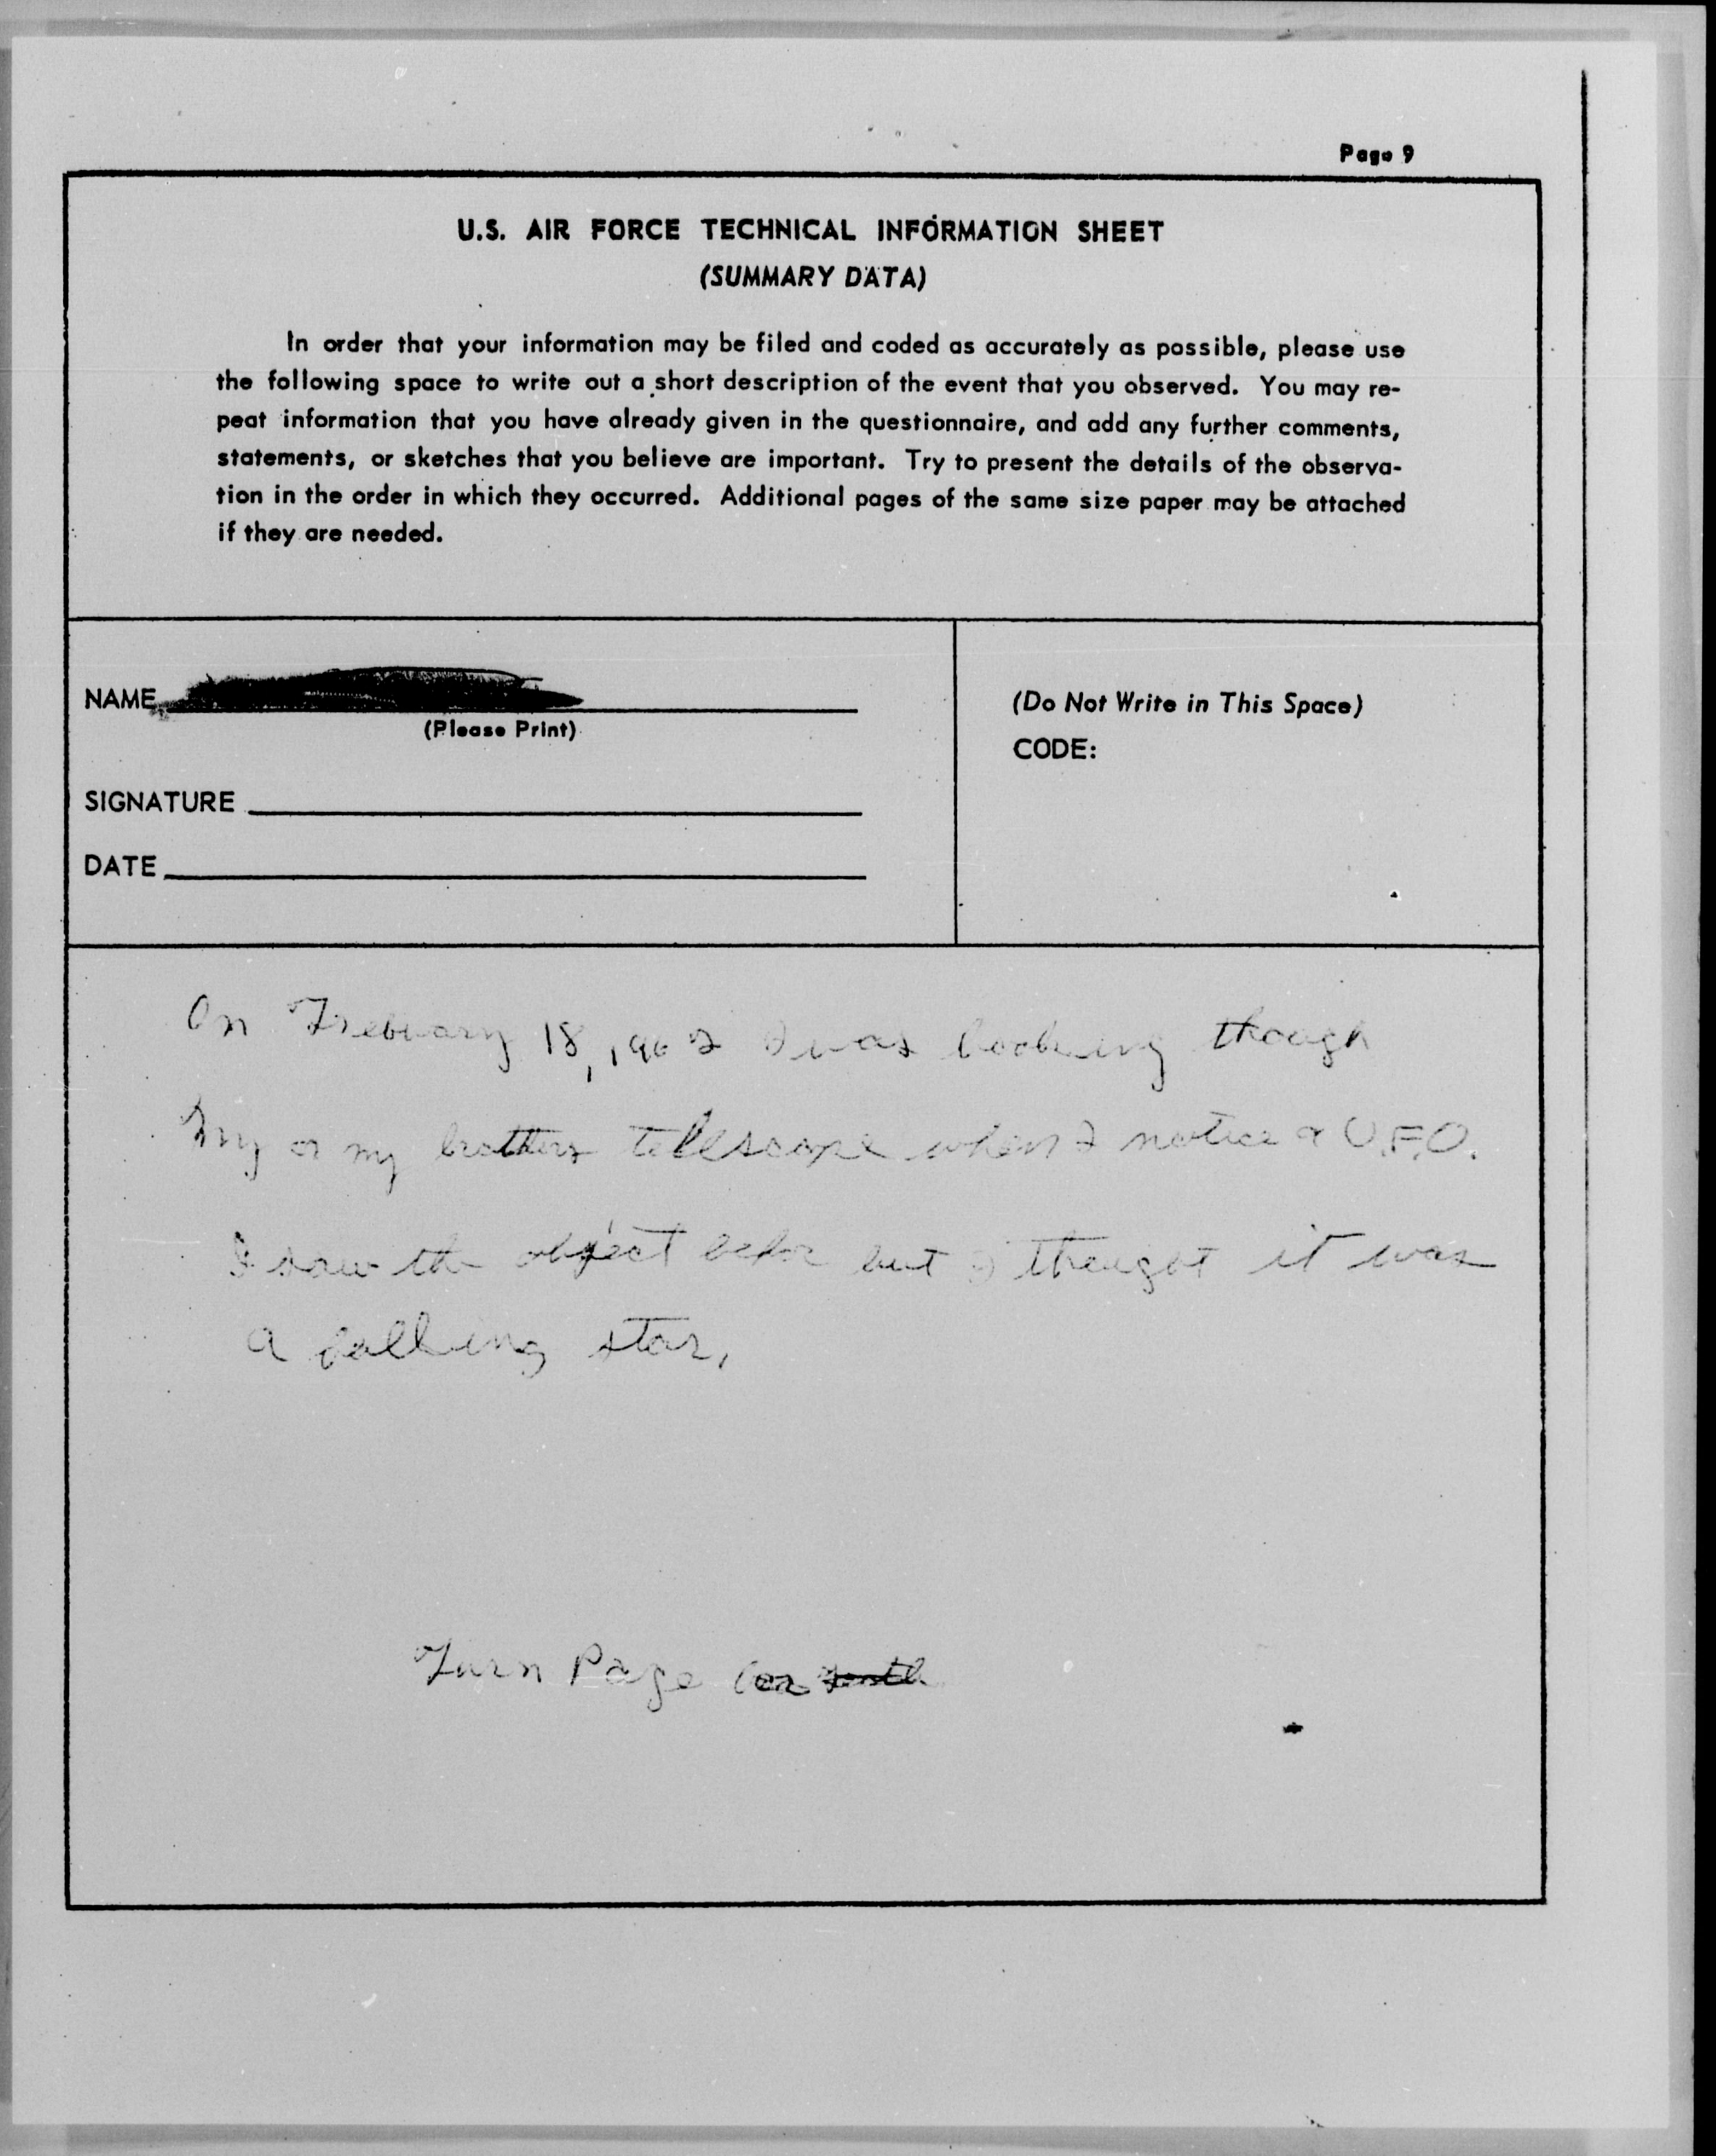 Page 9
U.S. AIR FORCE TECHNICAL INFORMATION SHEET
(SUMMARY DATA)
In order that your information may be filed and coded as accurately as possible, please use
the following space to write out a short description of the event that you observed. You may re-
peat information that you have already given in the questionnaire, and add any further comments,
statements, or sketches that you believe are important. Try to present the details of the observa-
tion in the order in which they occurred. Additional pages of the same size paper may be attached
if they are needed.
NAME
(Please Print)
SIGNATURE
DATE
(Do Not Write in This Space)
CODE:
On Frebuary 18, 1962 I was looking though
my or my brothers telescope when I notice a U.F.O.
I saw the object befor but I thought it was
a falling star,
Turn Page